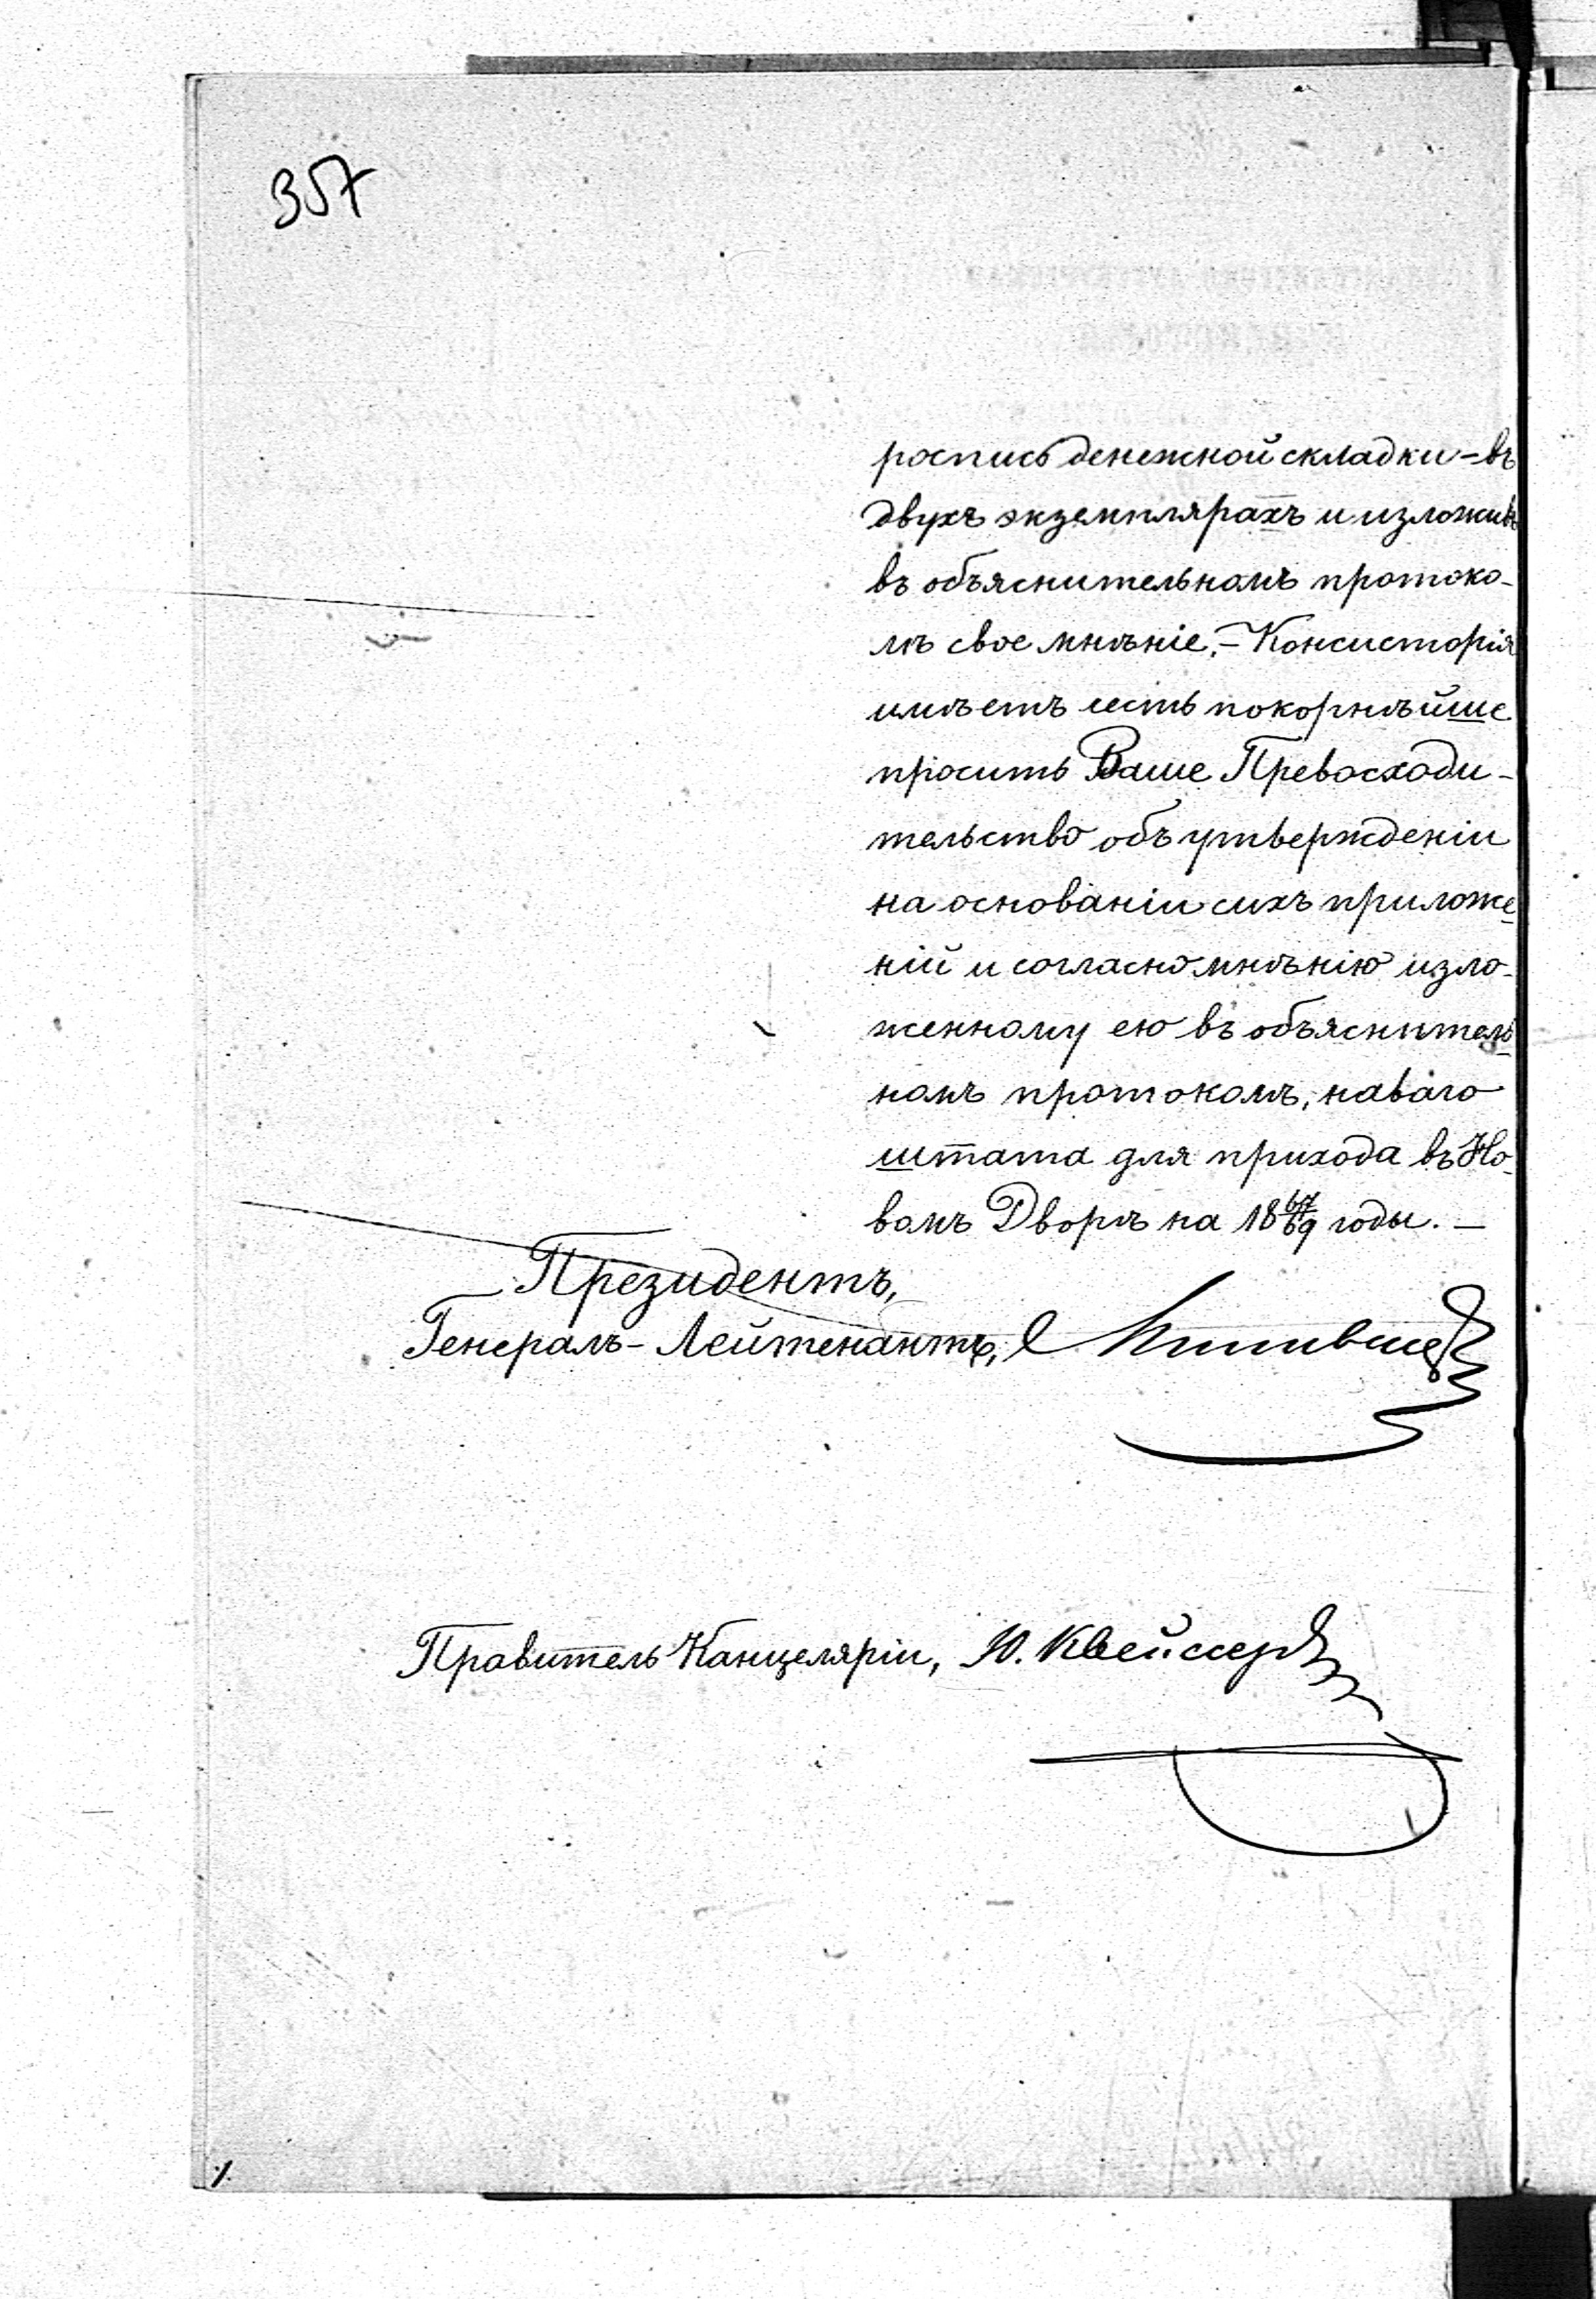 357
роспись денежной складки – въ
двухъ экземплярахъ и изложивъ
въ объяснительномъ протоко-
лѣ свое мнѣніе, – Консисторія
имѣетъ честь покорнѣйше
просить Ваше Превосходи-
тельство объ утвержденіи
на основаніи сихъ приложе-
ній и согласно мнѣнію изло-
женному ею въ объяснитель-
номъ протоколѣ, новаго
штата для прихода въ Но-
вомъ Дворѣ на 18 67/69 годы. –
Президентъ,
Генералъ-Лейтенантъ,
Правитель Канцеляріи, Ю. Квейссеръ